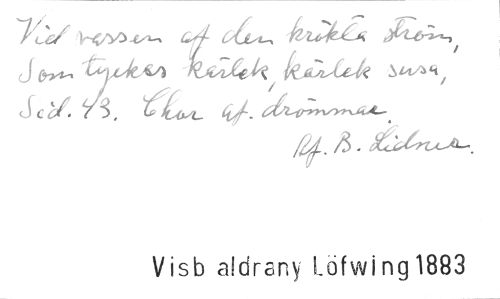 Vid vassen af den krökta ström,
Som tyckes kärlek, kärlek susa,
Sid. 43. Chor af drömmar.
Af. B. Lidner.
Visb aldrany Löfwing 1883